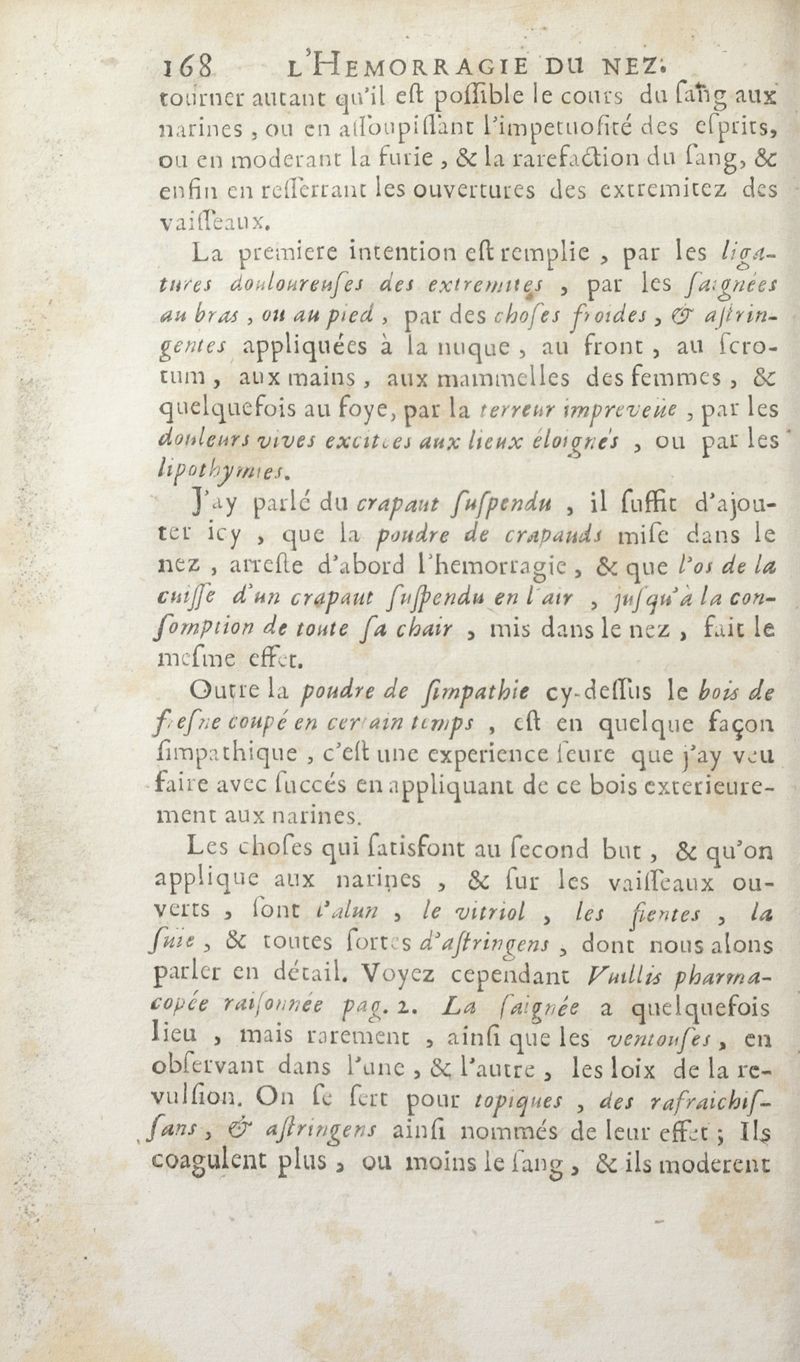 168 L'HEMORRAGIE DU NEZ.
tourner autant qu'il eſt poſſible le cours du ſang aux
narines, ou en aſſoupiſſant l'impetuoſité des eſprits,
ou en moderant la furie, & la rarefaction du ſang, &
enfin en reſſerrant les ouvertures des extremitez des
vaiſſeaux.
La premiere intention eſt remplie, par les liga-
tures douloureuſes des extremites, par les ſaignées
au bras, ou au pied, par des choſes froides, & aſtrin-
gentes appliquées à la nuque, au front, au ſcro-
tum, aux mains, aux mammelles des femmes, &
quelquefois au foye, par la terreur impreveüe, par les
douleurs vives excitées aux lieux éloignés, ou par les
lipothymies.
J'ay parlé du crapaut ſuſpendu, il ſuffit d'ajou-
ter icy, que la poudre de crapauds miſe dans le
nez, arreſte d'abord l'hemorragie, & que l'os de la
cuiſſe d'un crapaut ſuſpendu en l'air, juſqu'à la con-
ſomption de toute ſa chair, mis dans le nez, fait le
meſme effet.
Outre la poudre de ſimpathie cy-deſſus le bois de
freſne coupé en certain temps, eſt en quelque façon
ſimpathique, c'eſt une experience ſeure que j'ay veu
faire avec ſuccés en appliquant de ce bois exterieure-
ment aux narines.
Les choſes qui ſatisfont au ſecond but, & qu'on
applique aux narines, & ſur les vaiſſeaux ou-
verts, ſont l'alun, le vitriol, les fientes, la
ſuie, & toutes ſortes d'aſtringens, dont nous alons
parler en détail. Voyez cependant Vuillis pharma-
copée raiſonnée pag. 2. La ſaignée a quelquefois
lieu, mais rarement, ainſi que les ventouſes, en
obſervant dans l'une, & l'autre, les loix de la re-
vulſion. On ſe ſert pour topiques, des rafraichiſ-
ſans, & aſtringens ainſi nommés de leur effet; Ils
coagulent plus, ou moins le ſang, & ils moderent